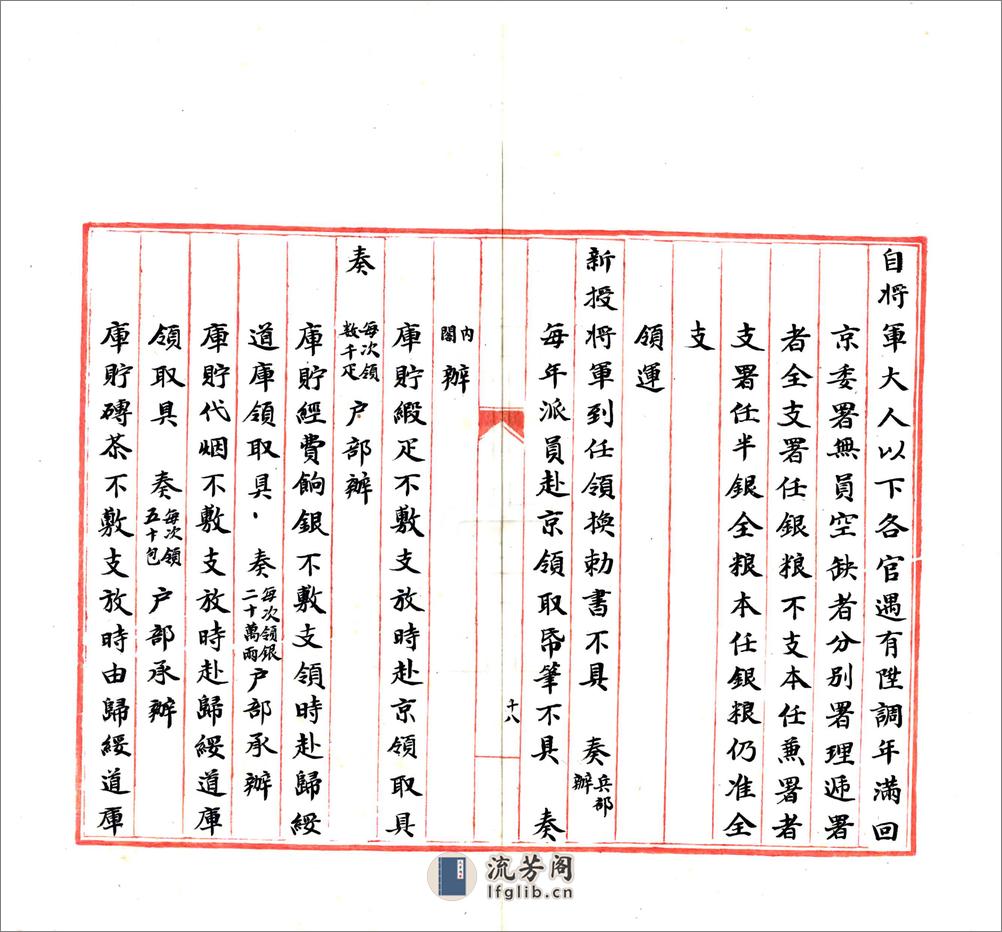 自將軍大人以下各官遇有陞調年滿回
京委署無員空缺者分別署理遞署
者全支署任銀粮不支本任兼署者
支署任半銀全粮本任銀粮仍准全
支
領運
新授將軍到任領換勅書不具 奏兵部辦
每年派員赴京領取帋筆不具 奏
十八
內閣辦
庫貯緞疋不敷支放時赴京領取具
奏 每次領數千疋户部辦
庫貯經費餉銀不敷支領時赴歸綏
道庫領取具、奏每次領銀二十萬兩户部承辦
庫貯代烟不敷支放時赴歸綏道庫
領取具 奏每次領五十包户部承辦
庫貯磚茶不敷支放時由歸綏道庫
流芳阁
lfglib.cn